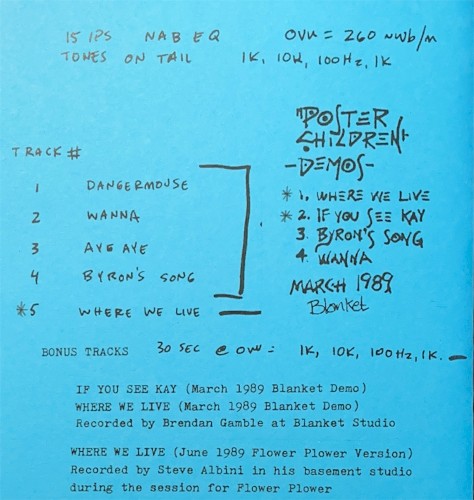 15 IPS NAB EQ 0VU = 260 nWb/m
TONES ON TAIL 1K, 10K, 100Hz, 1K
POSTER
CHILDREN
-DEMOS-
TRACK #
1 DANGERMOUSE
2 WANNA
3 AYE AYE
4 BYRON'S SONG
*5 WHERE WE LIVE
*1. WHERE WE LIVE
*2. IF YOU SEE KAY
3. BYRON'S SONG
4. WANNA
MARCH 1989
Blanket
BONUS TRACKS 30 SEC @ 0VU = 1K, 10K, 100Hz, 1K.
IF YOU SEE KAY (March 1989 Blanket Demo)
WHERE WE LIVE (March 1989 Blanket Demo)
Recorded by Brendan Gamble at Blanket Studio
WHERE WE LIVE (June 1989 Flower Plower Version)
Recorded by Steve Albini in his basement studio
during the session for Flower Plower